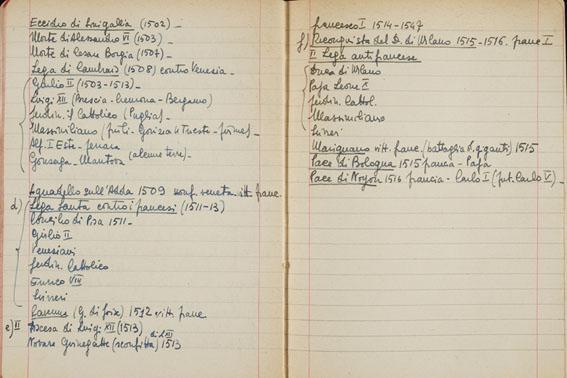 Eccidio di Sinigallia (1502) -
Morte di Alessandro VI (1503) -
Morte di Cesare Borgia (1507) -
Lega di Cambrai (1508) contro Venezia -
Giulio II (1503-1513) -
Luigi XII (Brescia - Cremona - Bergamo)
Ferdin. il Cattolico (Puglia) -
Massimiliano (Friuli - Gorizia Trieste - Fiume) -
Alf. I Este - Ferrara
Gonzaga - Mantova (alcune terre) -
Agnadello sull'Adda 1509 sconf. veneta vitt. franc.
d) Lega Santa contro i francesi (1511-13)
Concilio di Pisa 1511 -
Giulio II
Veneziani
Ferdin. Cattolico
Enrico VIII
Svizzeri
Ravenna (G. di Foix) 1512 vitt. franc
e) II Discesa di Luigi XII (1513)
Novara Guinegatte (sconfitta) di L. XII 1513
Francesco I 1514-1547
f) Riconquista del D. di Milano 1515-1516. franc I
II Lega antifrancese
Duca di Milano
Papa Leone X
Ferdin. Cattol.
Massimiliano
Svizzeri
Marignano vitt. franc. (battaglia d. giganti) 1515
Pace di Bologna 1515 Francia - Papa
Pace di Noyon 1516 Francia - Carlo I (fut. Carlo V) -